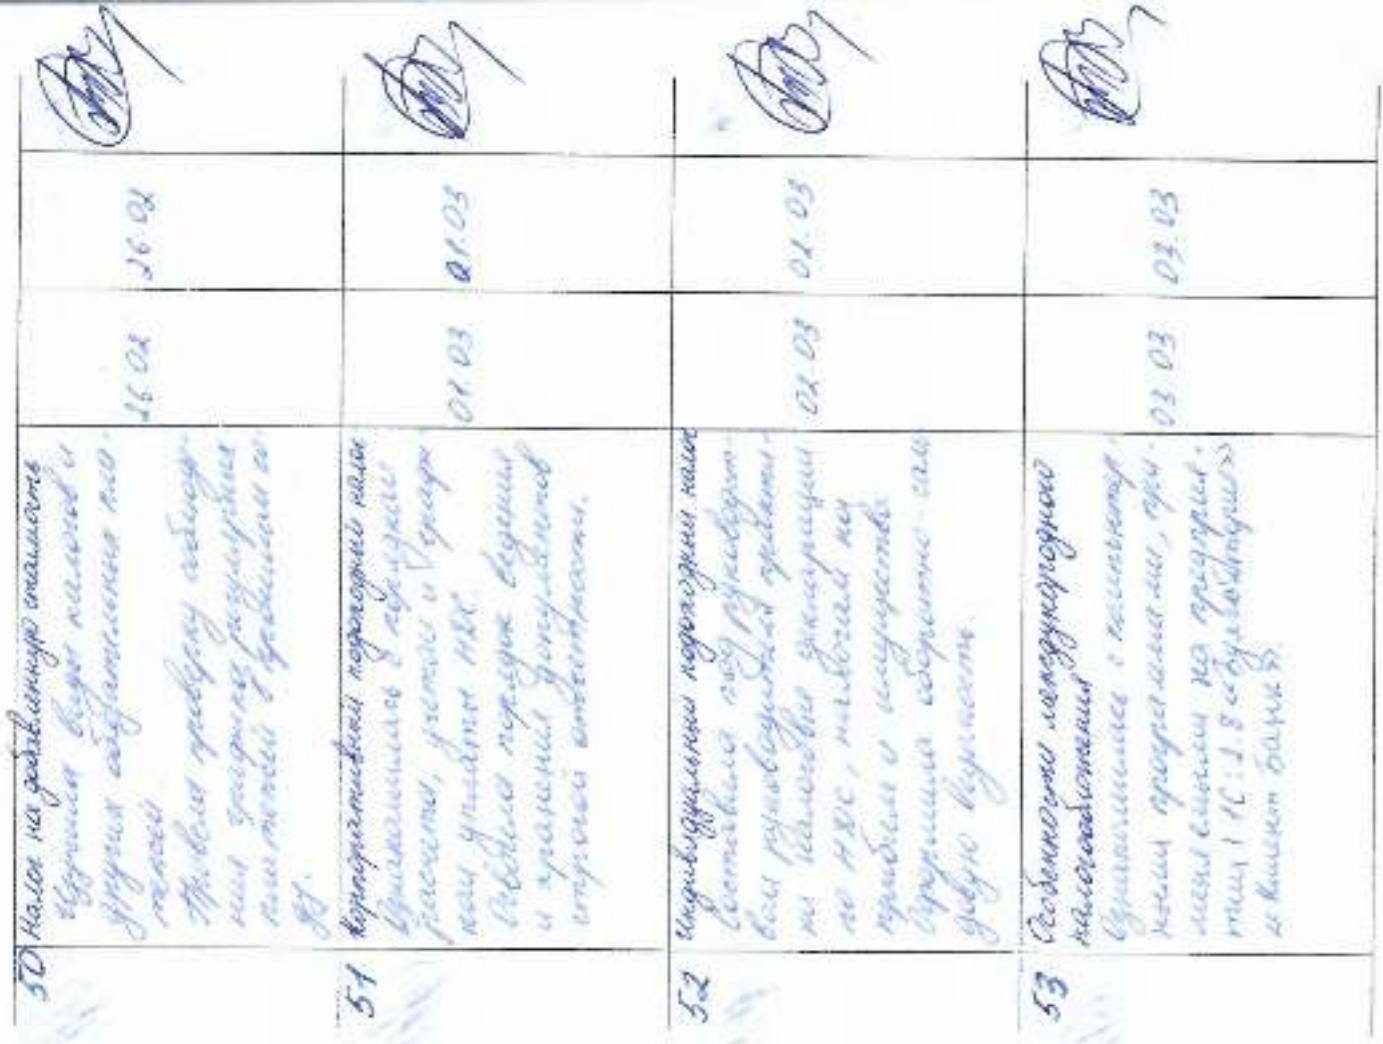 50 Налог на добавленную стоимость 26 02 26 02
Изучила виды налогов и
других обязательных пла-
тежей.
Провела проверку соблюде-
ния
платежей
51 Корпоративный подоходный налог 01.03 01.03
Ознакомилась с порядком
расчета, учетом и
уплаты НДС.
Освоила порядок ведения
и хранения документов
строгой отчетности.
52 Индивидуальный подоходный налог 02 03 02.03
Составила под руководст-
вом руководителя практи-
ки налоговые декларации
по НДС, налогам на
прибыль и имущество.
Оформила оборотно-саль
довую ведомость.
53 Особенности международного 03 03 03.03
налогообложения
Ознакомилась с компьютер-
ными программами, при-
меняемыми на предприя-
тии 1С:
и Клиент банк».